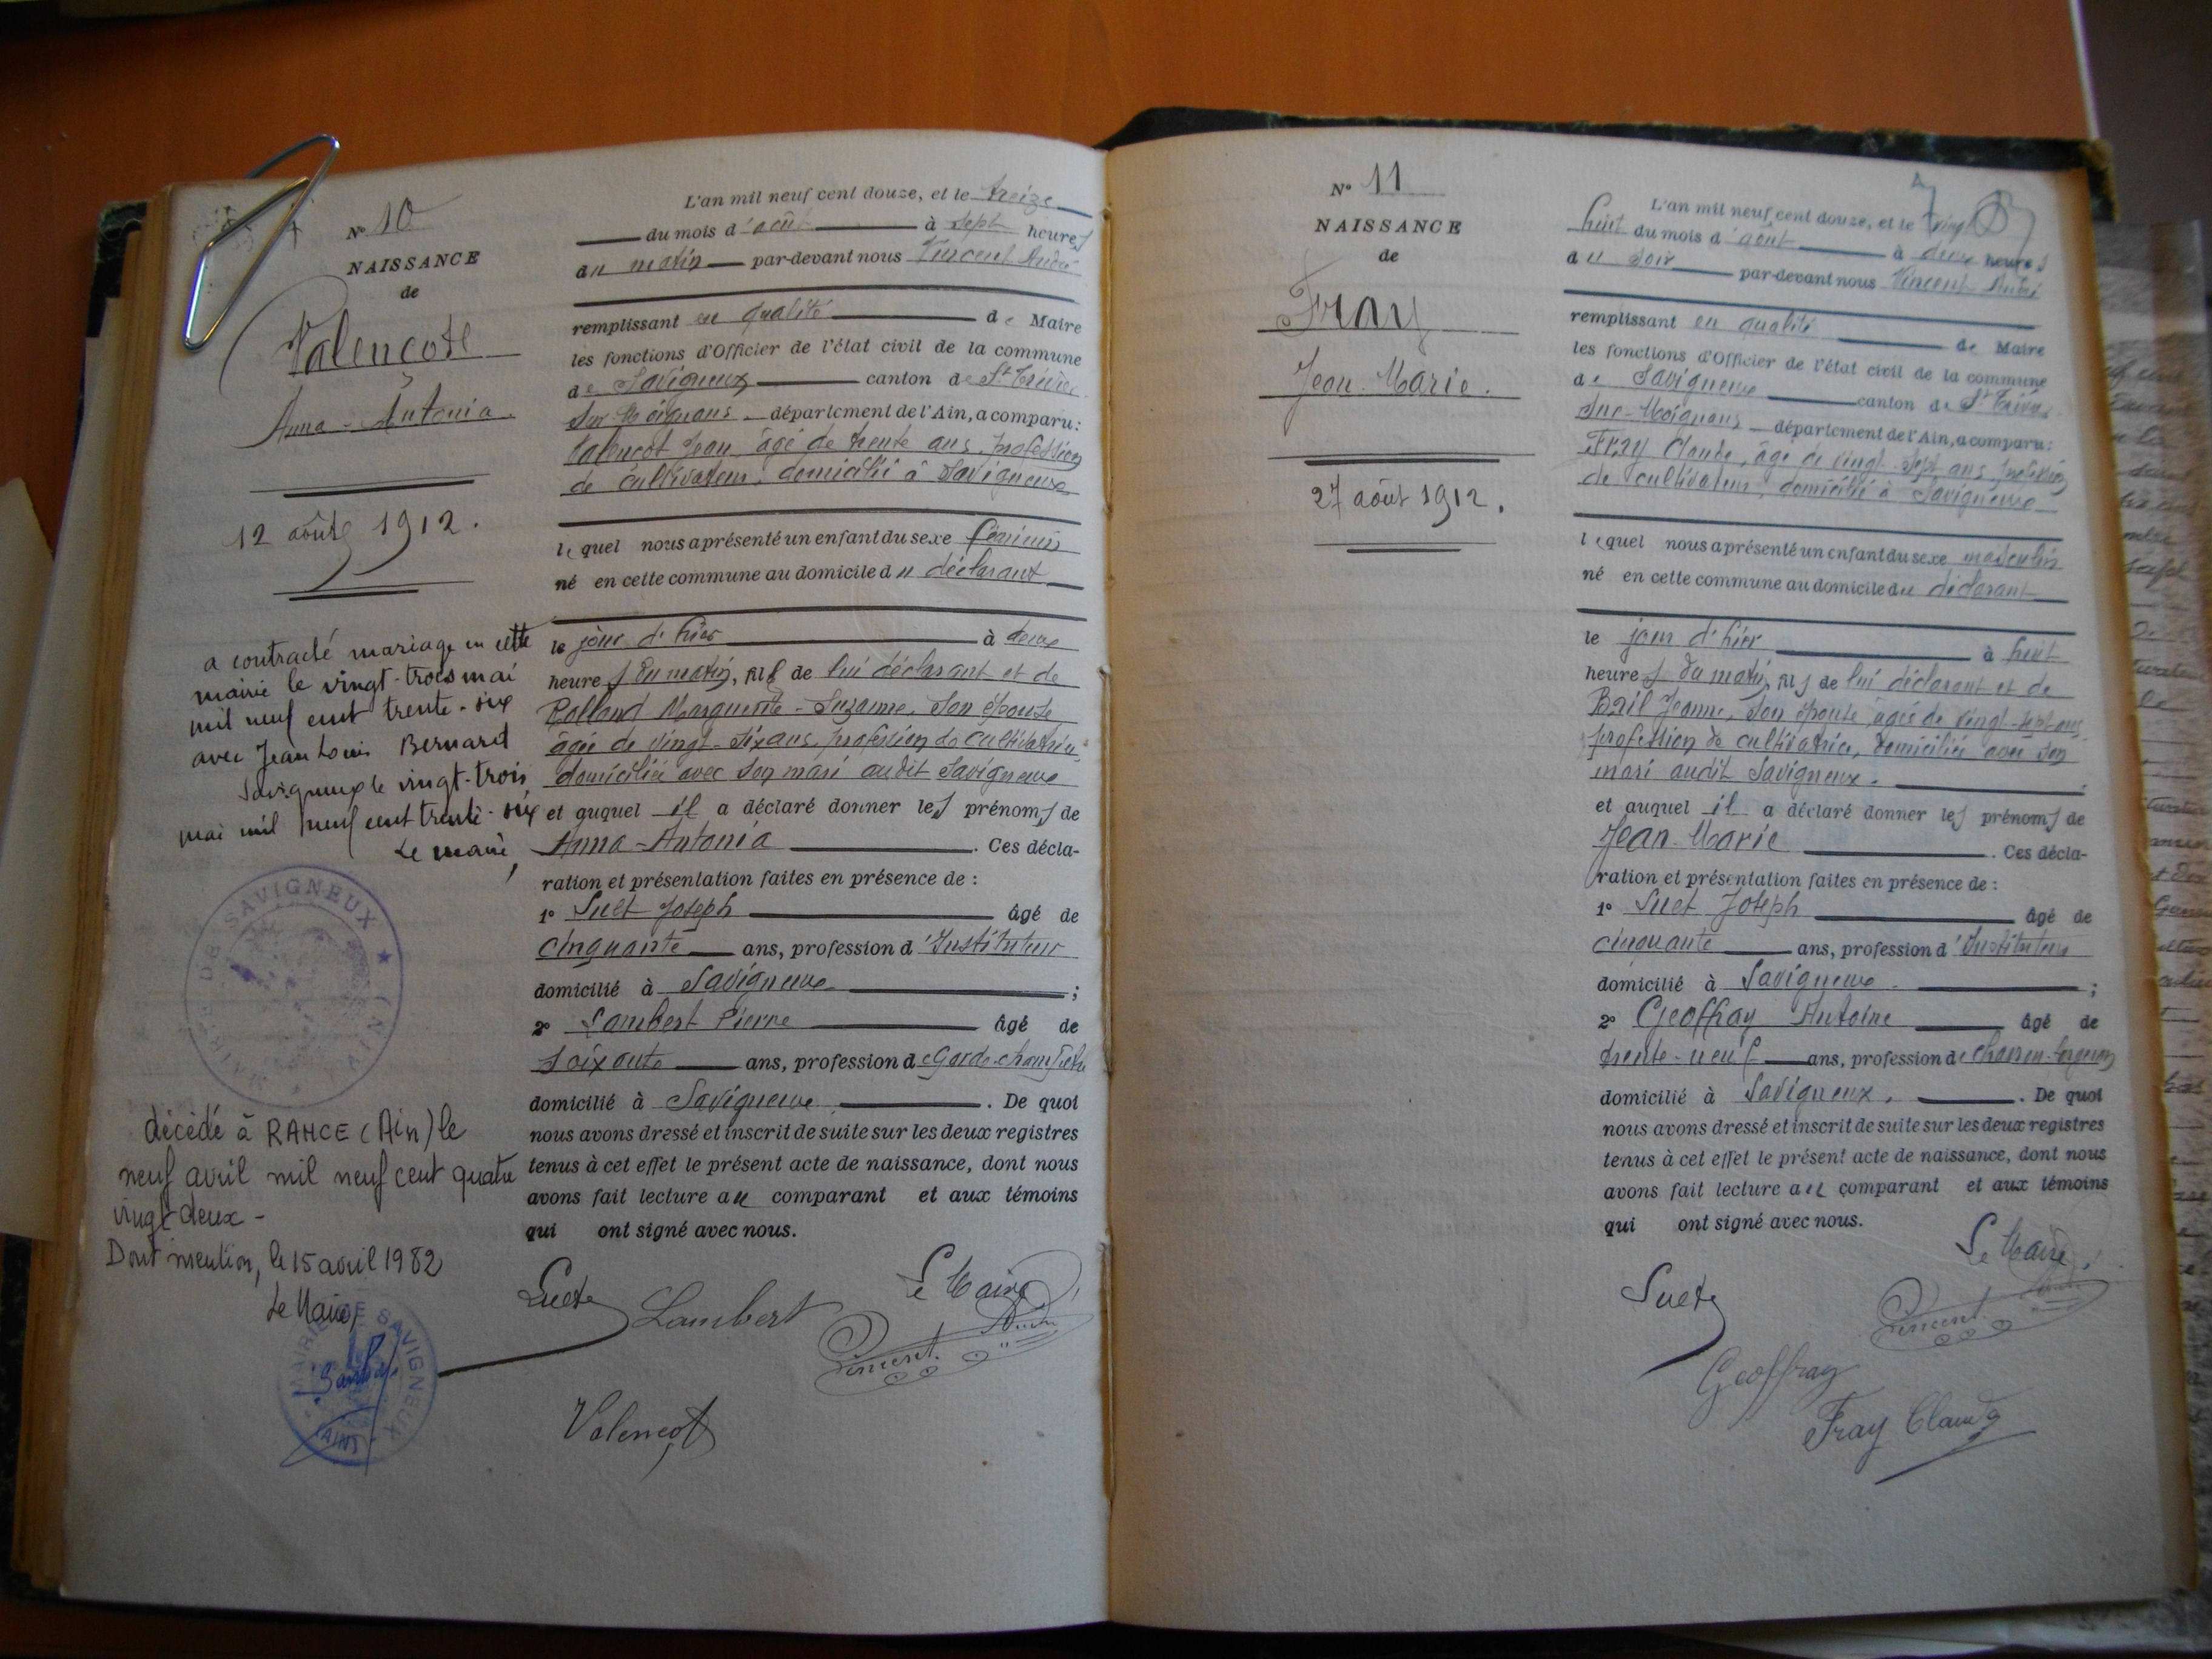 N° 10
NAISSANCE
de
Valençot
Anna - Antonia
12 août 1912.
a contracté mariage en cette
mairie le vingt-trois mai
mil neuf cent trente-six
avec Jean Louis Bernard
Savigneux le vingt-trois
mai mil neuf cent trente-six
Le maire,
MAIRIE DE SAVIGNEUX ★ (AIN)
décédé à RANCE (Ain) le
neuf avril mil neuf cent quatre
vingt deux -
Dont mention, le 15 avril 1982
Le Maire
MAIRIE DE SAVIGNEUX (AIN)
L'an mil neuf cent douze, et le treize
du mois d'août à sept heures
du matin par-devant nous Vincent André
remplissant en qualité de Maire
les fonctions d'Officier de l'état civil de la commune
de Savigneux canton de St Trivier
sur-Moignans département de l'Ain, a comparu:
Valençot Jean, âgé de trente ans, profession
de cultivateur, domicilié à Savigneux
lequel nous a présenté un enfant du sexe féminin
né en cette commune au domicile du déclarant
le jour d'hier à deux
heures du matin, fille de lui déclarant et de
Rolland Marguerite-Suzanne, son épouse
âgée de vingt-six ans, profession de cultivatrice
domiciliée avec son mari audit Savigneux
et auquel il a déclaré donner les prénoms de
Anna-Antonia. Ces décla-
ration et présentation faites en présence de :
1° Suet Joseph âgé de
cinquante ans, profession d'Instituteur
domicilié à Savigneux ;
2° Lambert Pierre âgé de
soixante ans, profession de Garde-champêtre
domicilié à Savigneux. De quoi
nous avons dressé et inscrit de suite sur les deux registres
tenus à cet effet le présent acte de naissance, dont nous
avons fait lecture au comparant et aux témoins
qui ont signé avec nous.
Le Maire,
Suet Lambert
Vincent André
Valençot
N° 11
NAISSANCE
de
Fray
Jean-Marie.
27 août 1912.
L'an mil neuf cent douze, et le vingt
huit du mois d'août à deux heures
du soir par-devant nous Vincent André
remplissant en qualité de Maire
les fonctions d'Officier de l'état civil de la commune
de Savigneux canton de St Trivier
sur-Moignans département de l'Ain, a comparu:
Fray Claude, âgé de vingt-sept ans, profession
de cultivateur, domicilié à Savigneux
lequel nous a présenté un enfant du sexe masculin
né en cette commune au domicile du déclarant
le jour d'hier à huit
heures du matin, fils de lui déclarant et de
Bril Jeanne, son épouse âgée de vingt-sept ans,
profession de cultivatrice, domiciliée avec son
mari audit Savigneux.
et auquel il a déclaré donner les prénoms de
Jean-Marie. Ces décla-
ration et présentation faites en présence de :
1° Suet Joseph âgé de
cinquante ans, profession d'Instituteur
domicilié à Savigneux ;
2° Geoffray Antoine âgé de
trente-neuf ans, profession de
domicilié à Savigneux. De quoi
nous avons dressé et inscrit de suite sur les deux registres
tenus à cet effet le présent acte de naissance, dont nous
avons fait lecture au comparant et aux témoins
qui ont signé avec nous.
Le Maire,
Suet
Vincent André
Geoffray
Fray Claude